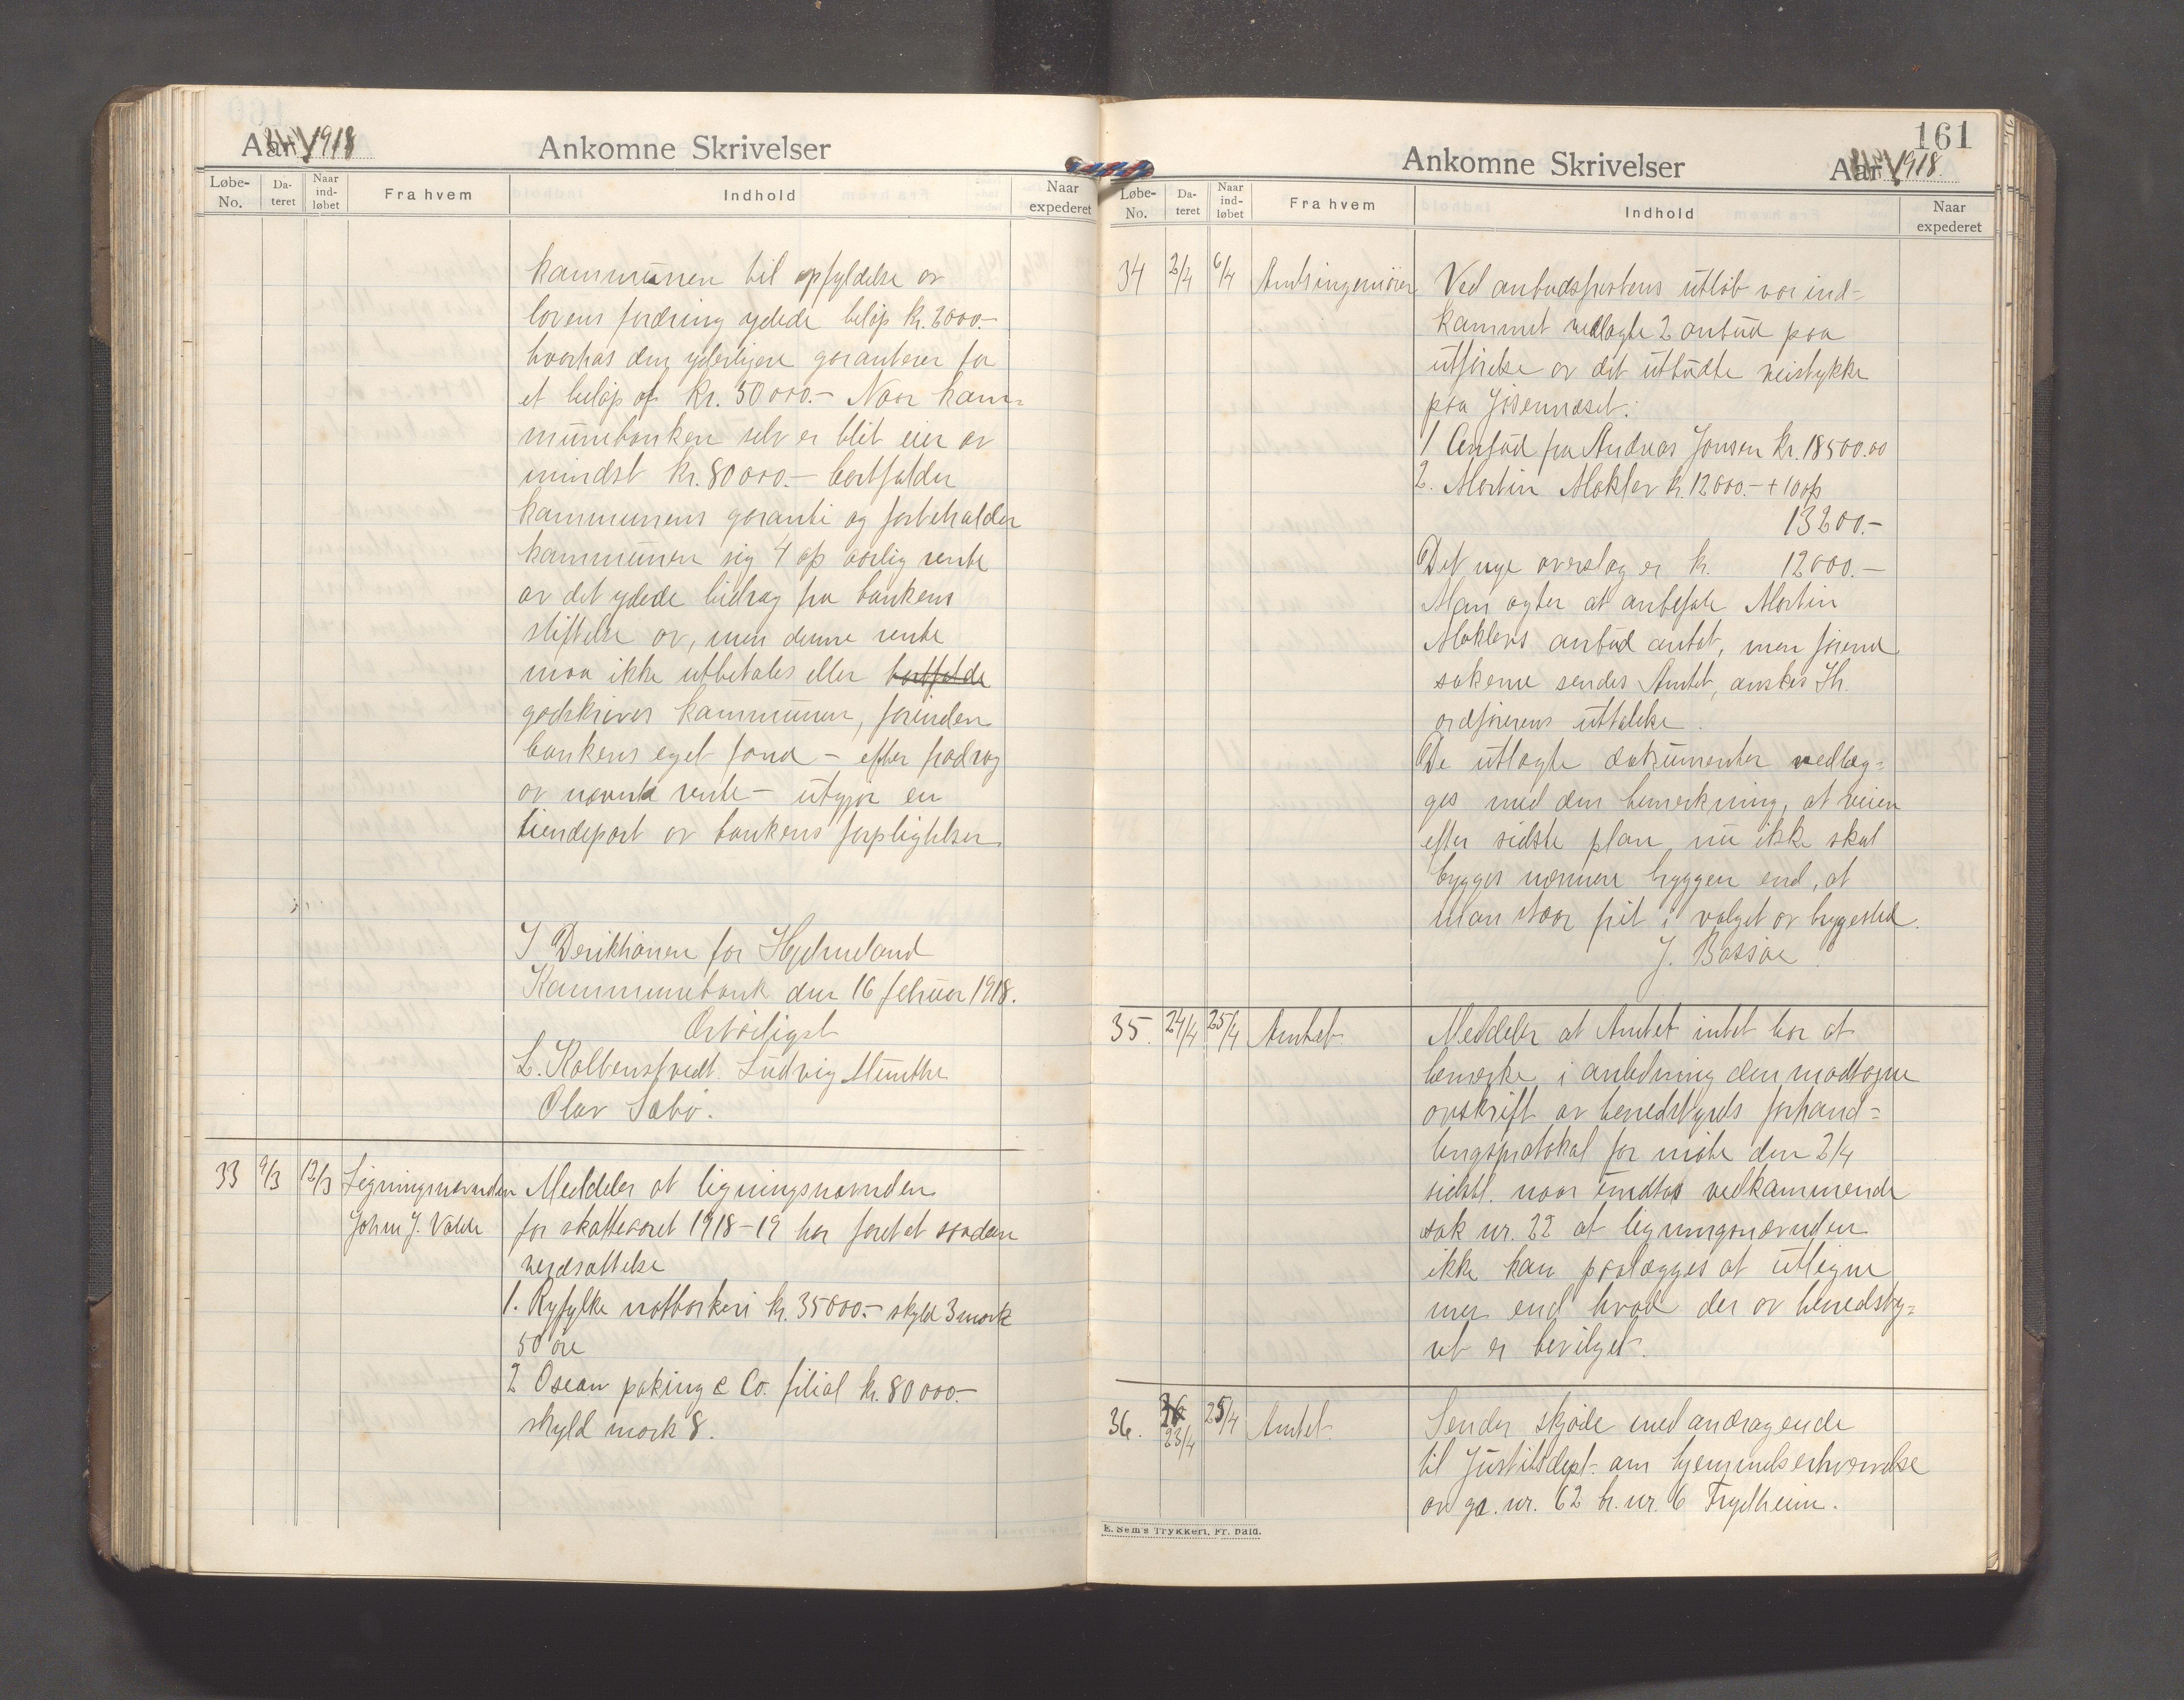 Aar 1918
Ankomne Skrivelser
Løbe-No.
Da-teret
Naar ind-løbet
Fra hvem
Indhold
Naar expederet
kommunen til opfyldelse av
lovens fordring ydede beløp kr. 2000.-
hvorhos den yderligere garanterer for
et beløp af kr. 50 000.- Naar kom=
munebanken selv er blit eier av
mindst kr. 80 000.- bortfalder
kommunens garanti og forbeholder
kommunen sig 4 % aarlig rente
av det ydede bidrag fra bankens
stiftelse av, men denne rente
maa ikke utbetales eller bortfalde
godskrives kommunen, førinden
bankens eget fond - efter fradrag
av nævnte rente - utgjør en
tiendepart av bankens forpligtelser.
I Deriktionen for Hjelmeland
Kommunebank den 16 februar 1918.
Ærbødigst
L. Kolbenstvedt. Ludvig Munthe
Olav Sæbø.
33 9/3 12/3 Ligningsnævnden Meddeler at ligningsnævnden
John J. Valde for skatteaaret 1918-19 har foretat saadan
verdsættelse
1. Ryfylke notbarkeri kr. 35000.- skyld 3 mark
50 øre
2 Osean paking & Co. filial kr. 80 000.-
skyld mark 8.
161
Ankomne Skrivelser
Aar 1918.
Løbe-No.
Da-teret
Naar ind-løbet
Fra hvem
Indhold
Naar expederet
34 2/4 6/4 Amtsingeniøren Ved anbudsfristens utløb var ind=
kommet vedlagte 2 anbud paa
utførelse av det utbudte veistykke
paa Jøsenneset:
1 Anbud fra Andreas Jonsen kr. 18500.00
2. Martin Mokler kr. 12000.- + 10 %
13200.-
Det nye overslag er kr. 12000.-
Man agter at anbefale Martin
Moklers anbud antat, men førend
sakerne sendes Amtet, ønskes Hr.
ordførerens uttalelse.
De utlagte dokumenter vedlæg=
ges med den bemerkning, at veien
efter sidste plan nu ikke skal
bygges nærmere bryggen end, at
man staar frit i valget av bryggested.
J. Bassøe
35. 24/4 25/4 Amtet Meddeler at Amtet intet har at
bemerke i anledning den modtagne
avskrift av herredstyrets forhand=
lingsprotokol for møte den 2/4
sidstl. naar undtas vedkommende
sak nr. 22 at ligningsnævnden
ikke kan paalægges at utligne
mer end hvad der av herredsty=
ret er bevilget.
36. 23/4 25/4 Amtet Sender skjøde med andragende
til Justitsdept. om hjemmelserhvervelse
av ga. nr. 62 br. nr. 6 Frydheim.
E. Sem's Trykkeri, Fr. hald.